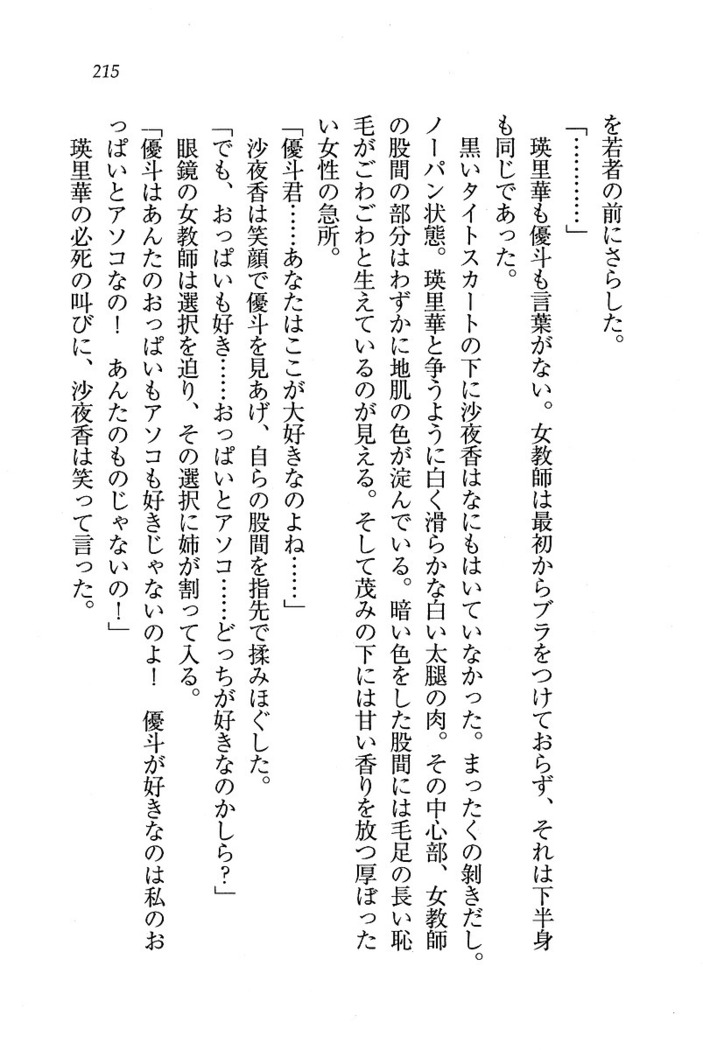 215
を若者の前にさらした。
「…………」
瑛里華も優斗も言葉がない。女教師は最初からブラをつけておらず、それは下半身
も同じであった。
黒いタイトスカートの下に沙夜香はなにもはいていなかった。まったくの剝きだし。
ノーパン状態。瑛里華と争うように白く滑らかな白い太腿の肉。その中心部、女教師
の股間の部分はわずかに地肌の色が淀んでいる。暗い色をした股間には毛足の長い恥
毛がごわごわと生えているのが見える。そして茂みの下には甘い香りを放つ厚ぼった
い女性の急所。
「優斗君……あなたはここが大好きなのよね……」
沙夜香は笑顔で優斗を見あげ、自らの股間を指先で揉みほぐした。
「でも、おっぱいも好き……おっぱいとアソコ……どっちが好きなのかしら?」
眼鏡の女教師は選択を迫り、その選択に姉が割って入る。
「優斗はあんたのおっぱいもアソコも好きじゃないのよ! 優斗が好きなのは私のお
っぱいとアソコなの! あんたのものじゃないの!」
瑛里華の必死の叫びに、沙夜香は笑って言った。